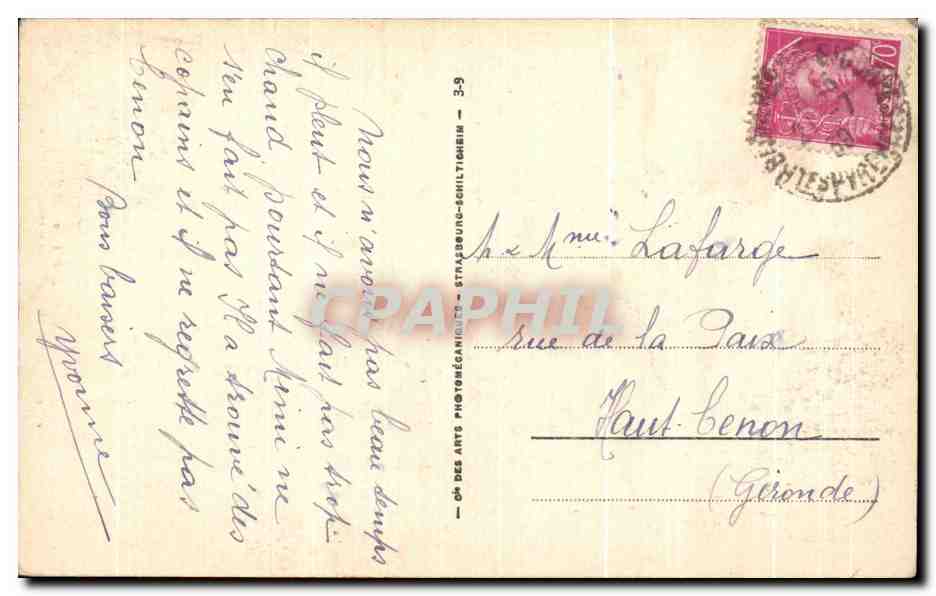 Nous n'avons pas beau temps
il pleut et il ne fait pas trop
chaud pourtant Mimi ne
s'en fait pas Il a trouvé des
copains et il ne regrette pas
Cenon
Bons baisers
Yvonne
— Cie DES ARTS PHOTOMÉCANIQUES – STRASBOURG-SCHILTIGHEIM — 3-9
CPAPHIL
70
POSTES
M & Mme Lafarge
rue de la Paix
Haut-Cenon
(Gironde)